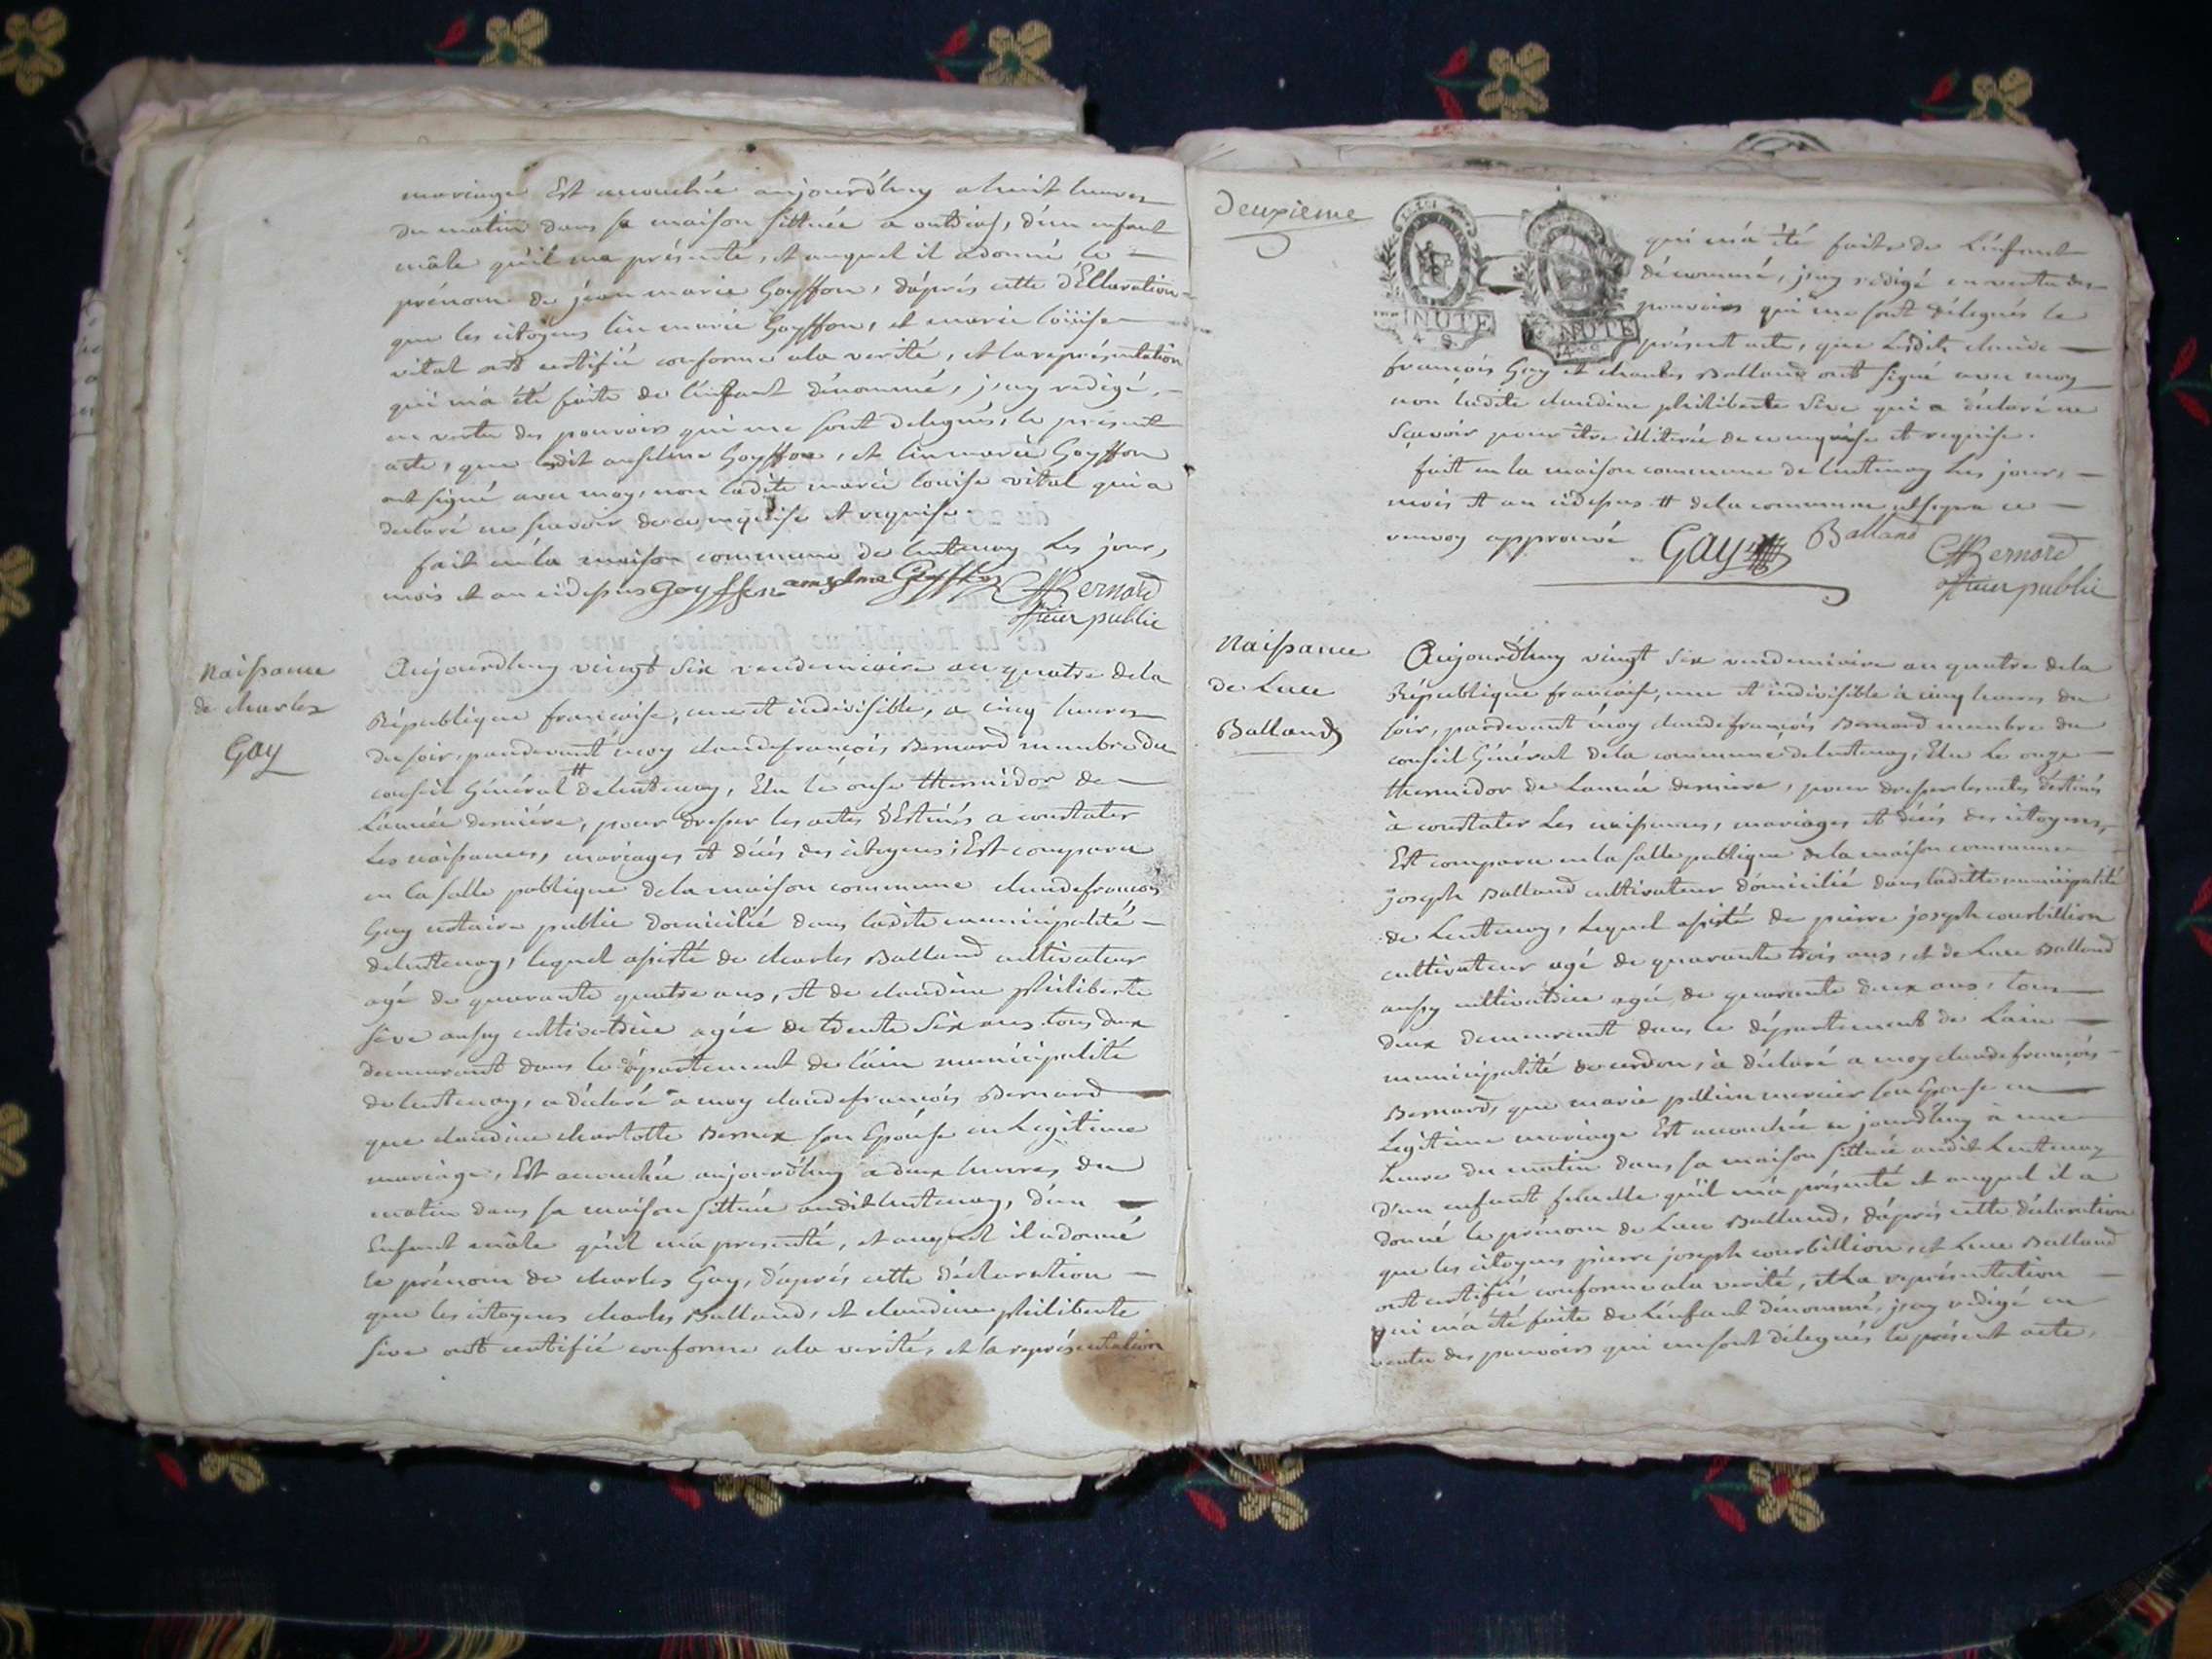 mariage Est accouchée aujourd'huy a huit heures
du matin dans sa maison sittuée a outriaz, d'un enfant
mâle qu'il ma présenté, et auquel il adonné le
prénom de jean marie Goyffon, d'après cette d'Ellaration
que les citoyens lin marie Goyffon, et marie loüise
vital ont certifié conforme ala verité, et la représentation
qui m'a été faite de l'enfant dénommé, j'ay redigé,
en vertu des pouvoirs qui me sont delegués, le présent
acte, que ledit anselme Goyffon, et lin marie Goyffon
ont signé avec moy, non ladite marie louise vital qui a
declaré ne scavoir de ce enquise et requise.
fait en la maison commune de lentenay Les jour,
mois et an cidessus Goyffon anselme Goyffon CfBernard
officier public
Naissance
de charles
Gay
Aujourdhuy vingt six vendemiaire an quatre dela
République françoise, une et indivisible, a cinq heures
du soir, pardevant moy claudefrançois Bernard membre du
conseil Général # delentenay, Elu le onse thermidor de
Lannée derniére, pour dresser les actes d'Estinés a constater
Les naissances, mariages et décés des citoyens; Est comparu
en la salle publique dela maison commune claudefrancois
Gay notaire public domicilié dans ladite municipalité
delentenay, lequel assisté de charles Balland cultivateur
agé de quarante quatre ans, et de claudine philiberte
sive aussy cultivatrice agée de trente six ans tous deux
demeurant dans le département de l'ain municipalité
de lentenay, a déclaré a moy claudefrançois Bernard
que claudine charlotte Bernex son Epouse en Legitime
mariage, Est accouchée aujourd'huy a deux heures du
matin dans sa maison sittuée audit lentenay, d'un
Enfant mâle qu'il m'a presenté, et auquel il adonné
le prénom de charles Gay, d'après cette déclaration
que les citoyens charles Balland, et claudine philiberte
sive ont certifié conforme ala verité, et la représentation
Deuxieme
INUTE
4 S.
NUTE
qui m'a été faite de L'enfant
dénommé, j'ay redigé en vertu des
pouvoirs qui me sont délegués le
présent acte, que Lesdits claude
françois Gay et charles Balland ont signé avec moy
non ladite claudine philiberte sive qui a déclaré ne
sçavoir pour être illiterée de ce enquise et requise.
fait en la maison commune de lentenay Les jour,
mois et an cidessus # dela commune
renvoy approuvé Gay Balland CfBernard
officier public
Naissance
de Luce
Balland
Aujourd'huy vingt six vendemiaire an quatre dela
République françoise, une et indivisible a cinq heures du
soir, pardevant moy claudefrançois Bernard membre du
conseil Général dela commune delentenay, Elu Le onze
thermidor de Lannée derniere, pour dresser les actes déstinés
à constater Les naissances, mariages et décés des citoyens,
Est comparu en la salle publique dela maison commune
joseph Balland cultivateur domicilié dans laditte municipalité
de Lentenay, Lequel assisté de pierre joseph courbillion
cultivateur agé de quarante trois ans, et de Luce Balland
aussy cultivatrice agée de quarante deux ans, tous
deux demeurant dans le département de L'ain
municipalité de cerdon, à déclaré a moy claudefrançois
Bernard, que marie mercier son Epouse en
Legitime mariage Est accouchée ce jourd'huy à une
heure du matin dans sa maison sittuée audit Lentenay
d'un enfant femelle qu'il m'a présenté et auquel il a
donné le prénom de Luce Balland, d'après cette déclaration
que les citoyens pierre joseph courbillion, et Luce Balland
ont certifié conforme ala verité, et La représentation
qui m'a été faite de L'enfant dénommé, j'ay redigé en
vertu des pouvoirs qui me sont délegués le présent acte,